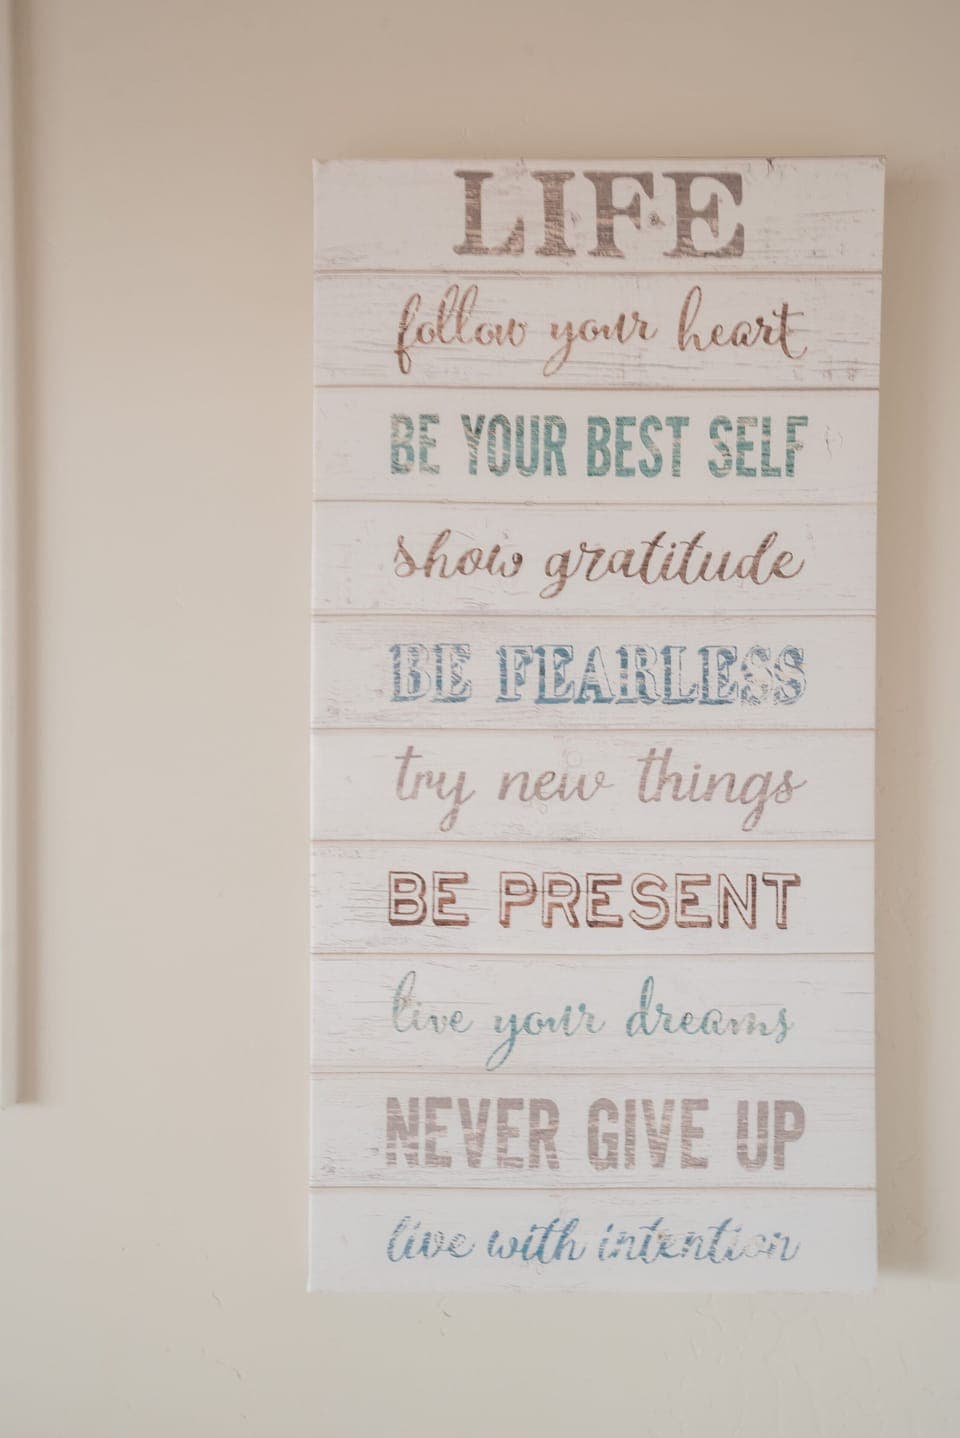 LIFE
follow your heart
BE YOUR BEST SELF
show gratitude
BE FEARLESS
try new things
BE PRESENT
live your dreams
NEVER GIVE UP
live with intention